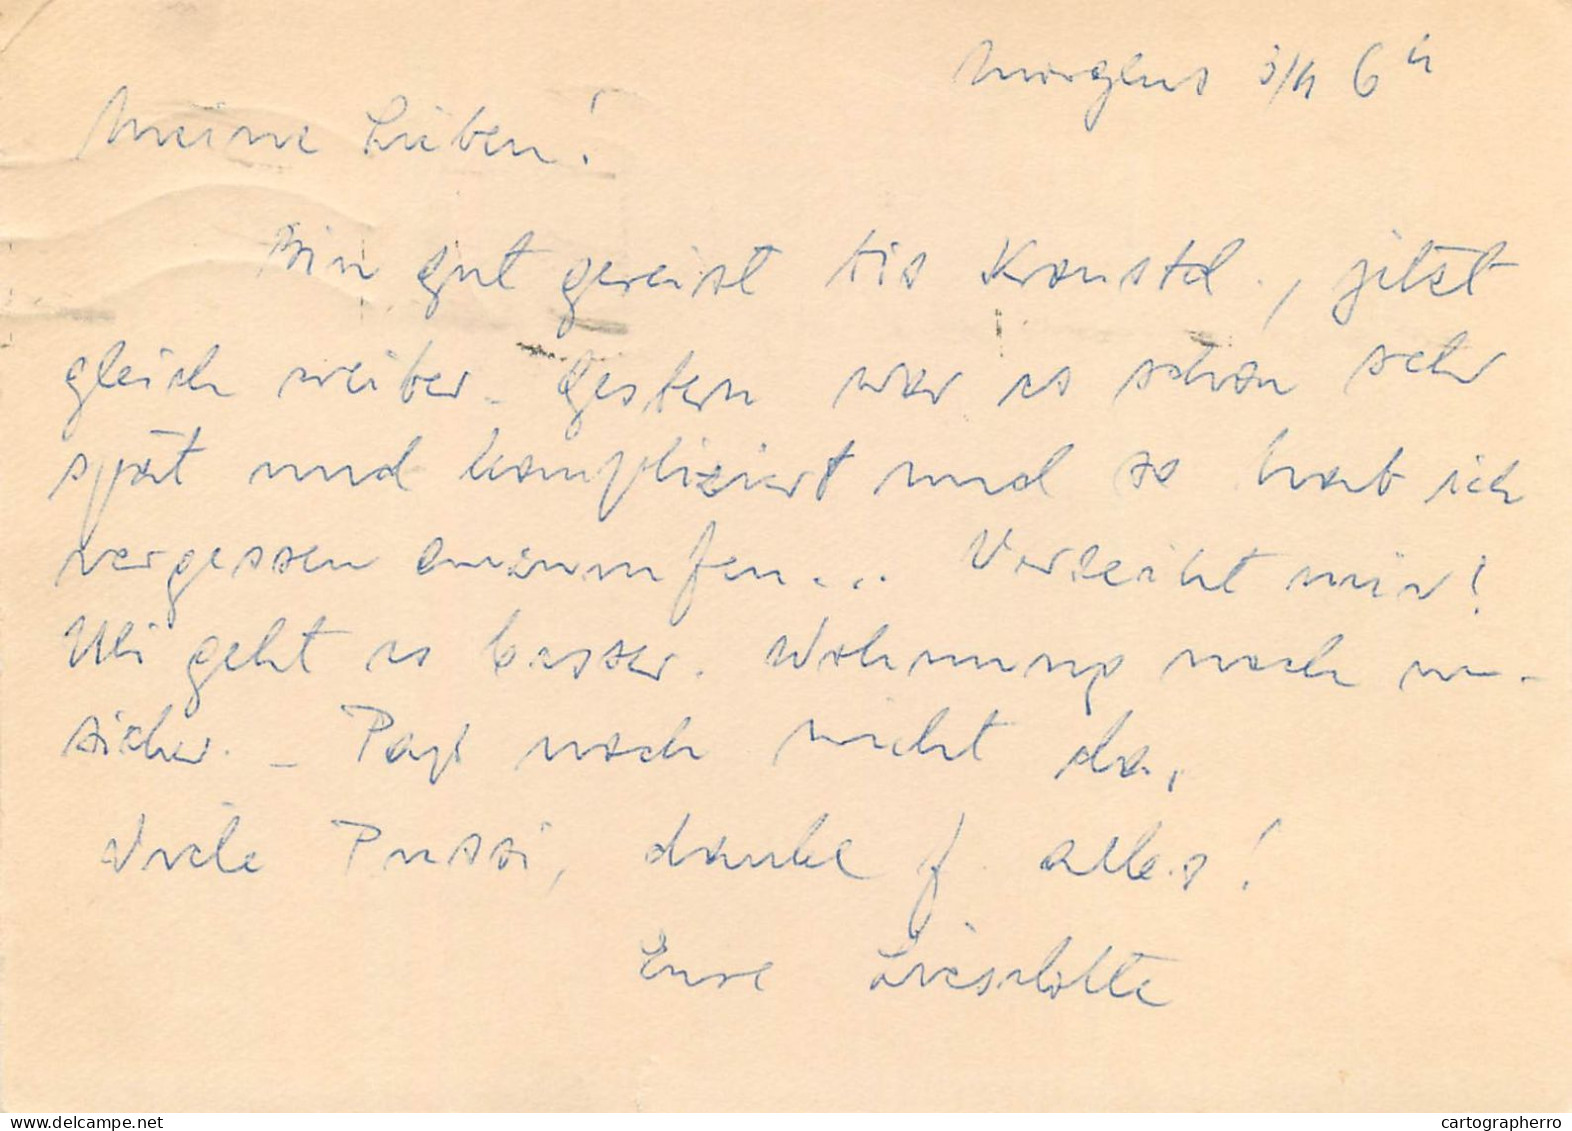 Morgens 3/4 6 h
Meine Lieben!
Bin gut gereist bis Kronstd., jetzt
gleich weiter. Gestern war es schon sehr
spät und kompliziert und so hab ich
vergessen anzurufen... Verzeiht mir!
Uli geht es besser. Wohnung noch un-
sicher. – Papi noch nicht da.
Viele Pussi, danke f. alles!
Eure Lieselotte
cartographerro